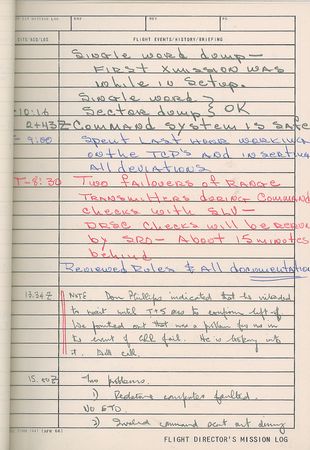 DAY
REV
PG
GMT OR MISSION LOG
SITE/ACQ/LOS
FLIGHT EVENTS/HISTORY/BRIEFING
Single word dump —
First Xmission was
while in setup.
Single word }
-10:16 Sector dump } OK
2+43Z Command System is Safe
- 9:00 Spent last hour working
on the TCP's and inserting
All deviations
T-8:30 Two failovers of Range
Transmitters during Command
checks with SLV —
DRSC checks will be
by SRO — About 15 minutes
behind
Reviewed Rules & All documentation
13:34 Z NOTE Don Phillips indicated that he intended
to wait until T+5 sec to confirm lift off
We pointed out that was a problem for me in
the event of fail. He is looking into
it. Will call.
15:00Z Two problems.
1) Redstone computer faulted.
NO ETO
2) Invalid command sent out during
(APR 68)
FLIGHT DIRECTOR'S MISSION LOG